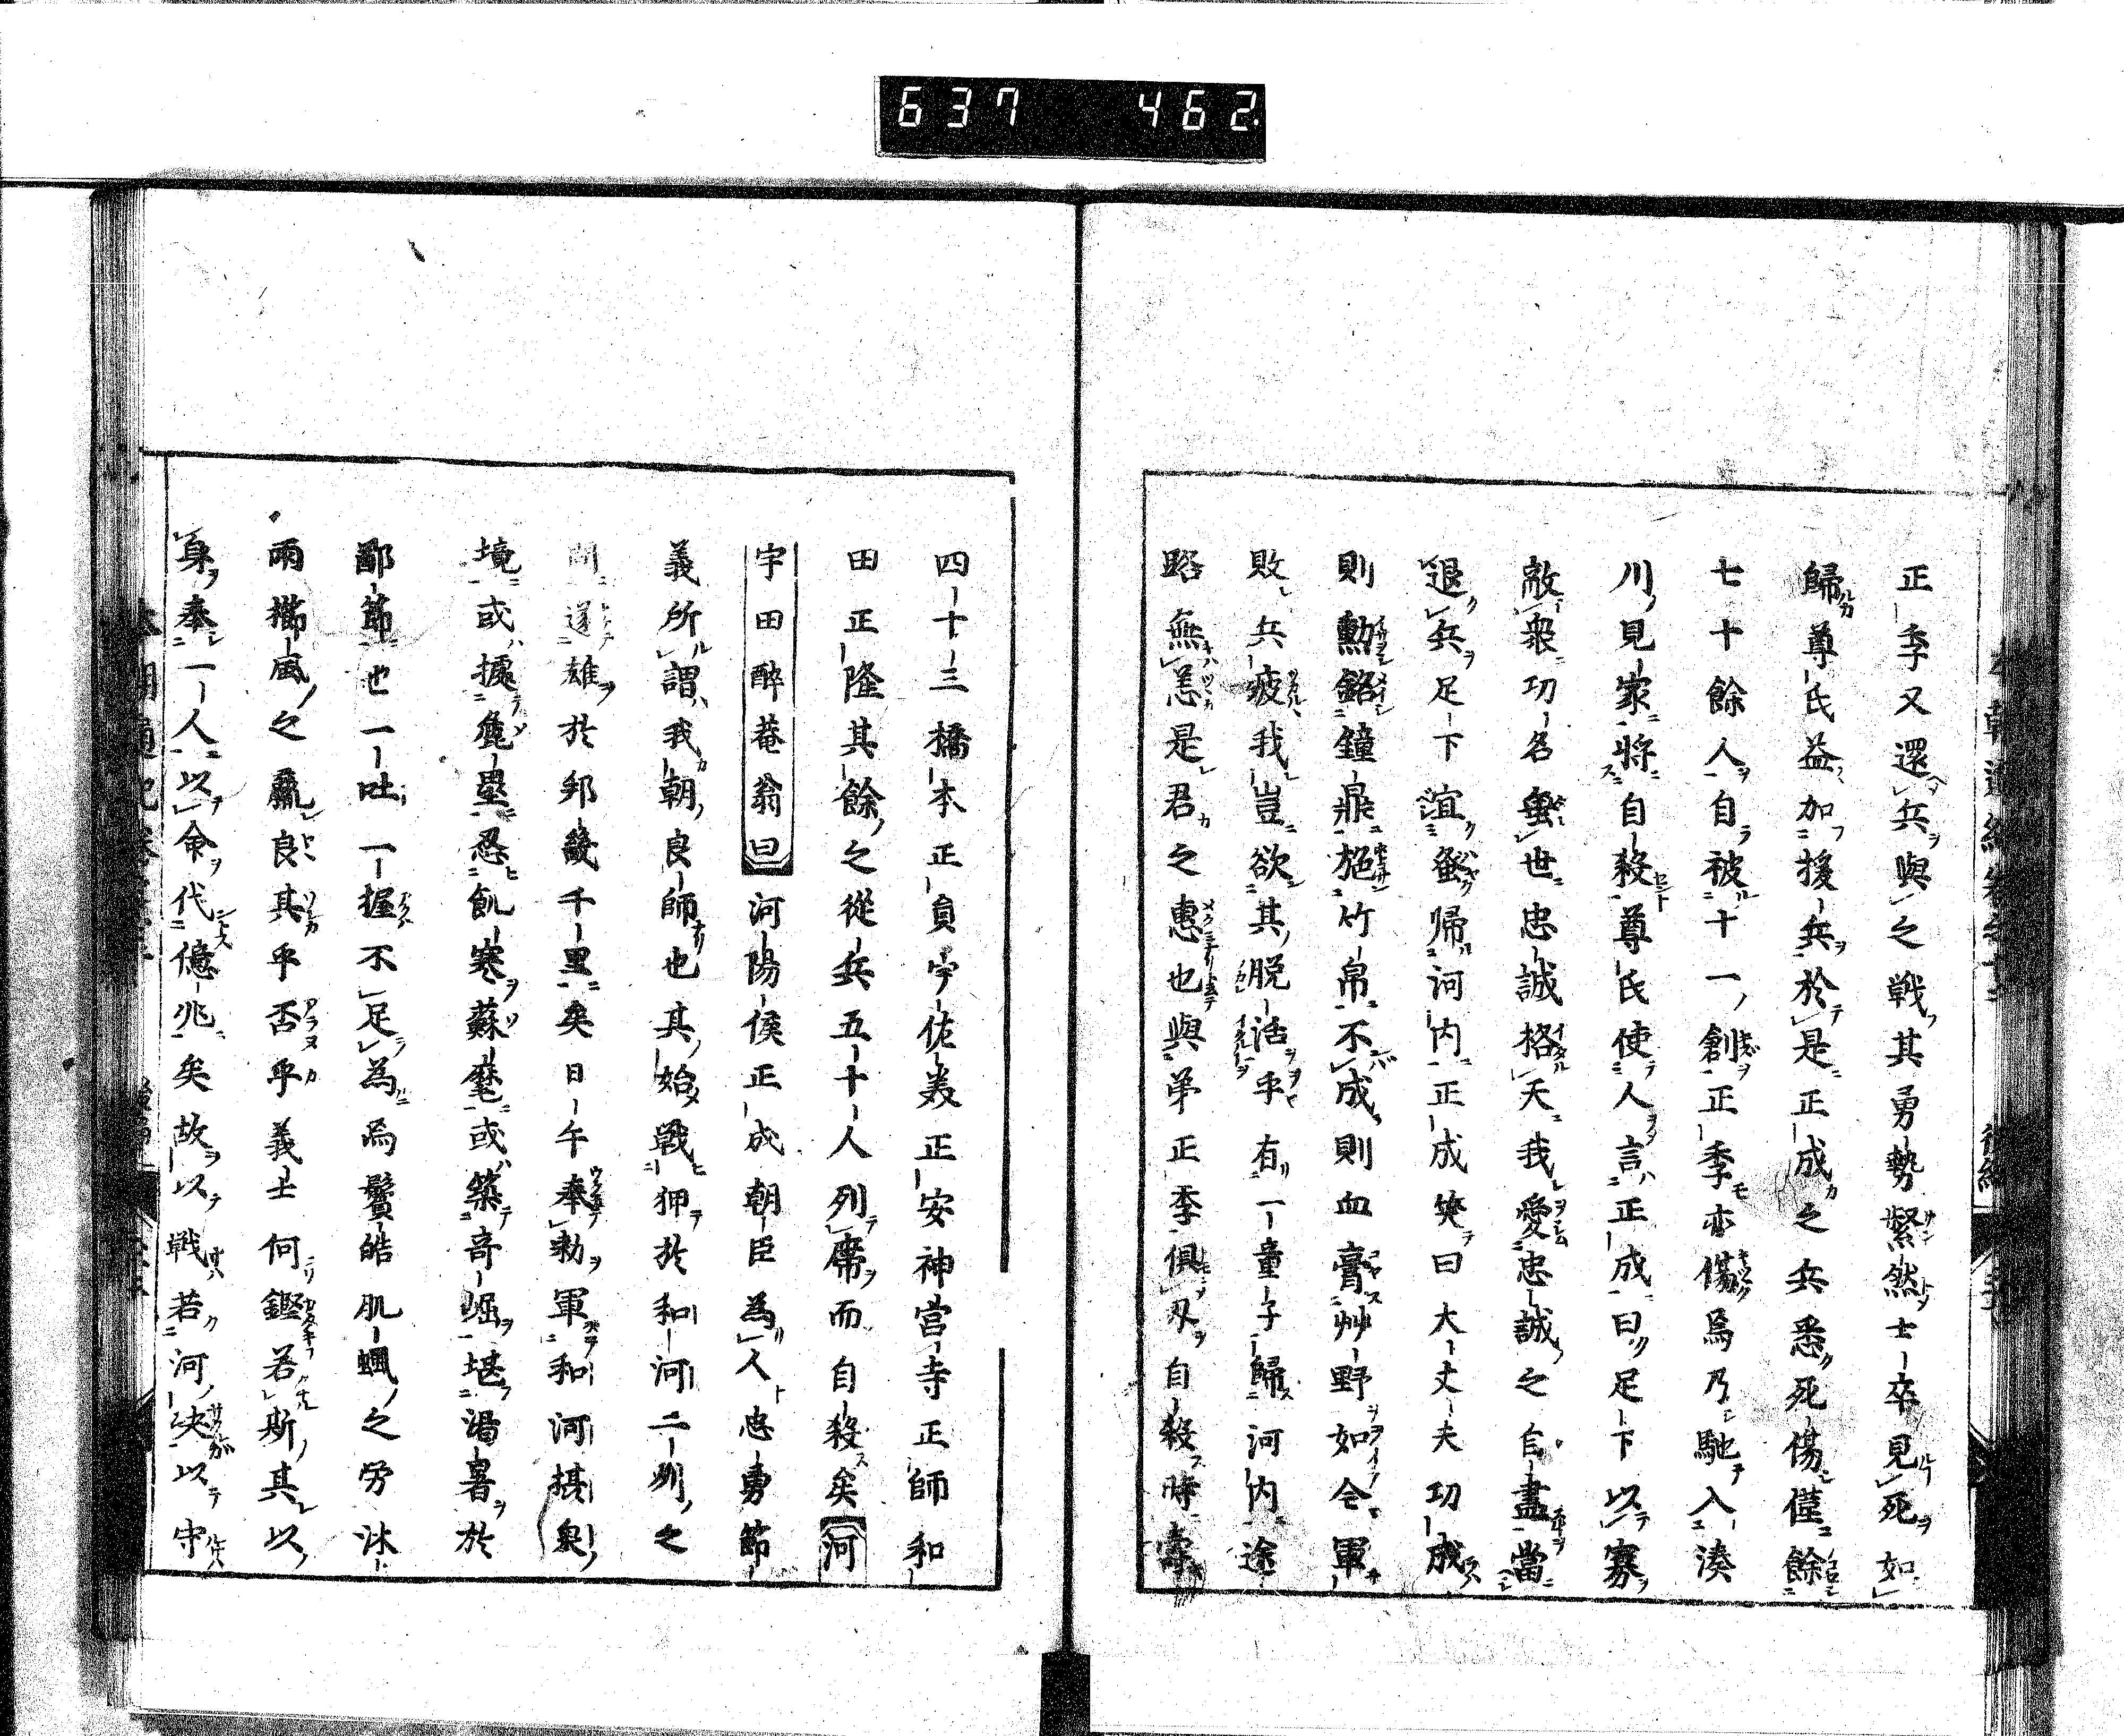 637 462
正季又還兵與之戦其勇勢緊然士卒見死如
歸尊氏益加援兵於是正成之兵悉死傷僅餘
七十餘人自被十一創正季亦傷焉乃馳入湊
川見家將自殺尊氏使人言正成曰足下以寡
敵衆功名蓋世忠誠格天我愛忠誠之自盡當
退兵足下宜蚤帰河内正成笑曰大丈夫功成
則勲銘鐘鼎施竹帛不成則血膏艸野如今軍
敗兵疲我豈欲其脱活乎有一童子歸河内途
路無恙是君之惠也與弟正季俱刃自殺時壽
四十三橋本正員宇佐美正安神宮寺正師和
田正隆其餘之從兵五十人列席而自殺矣河
宇田醉菴翁曰河陽侯正成朝臣為人忠勇節
義所謂我朝良師也其始戦狎於和河二州之
間逐雄於邦畿千里矣日午奉勅軍和河摂泉
境或據危塁忍飢寒蘇麾或築奇堀堪渇暑於
鄙節也一吐一握不足為焉鬢皓肌蝋之労沐
雨櫛風之羸良其乎否乎義士何鏗若斯其以
身奉一人以命代億兆矣故以戦若河決以守